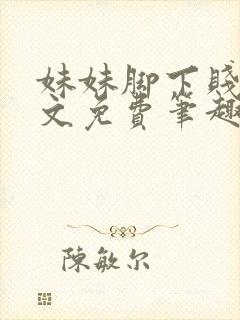 妹妹脚下贱
文免费笔趣
陈敏尔